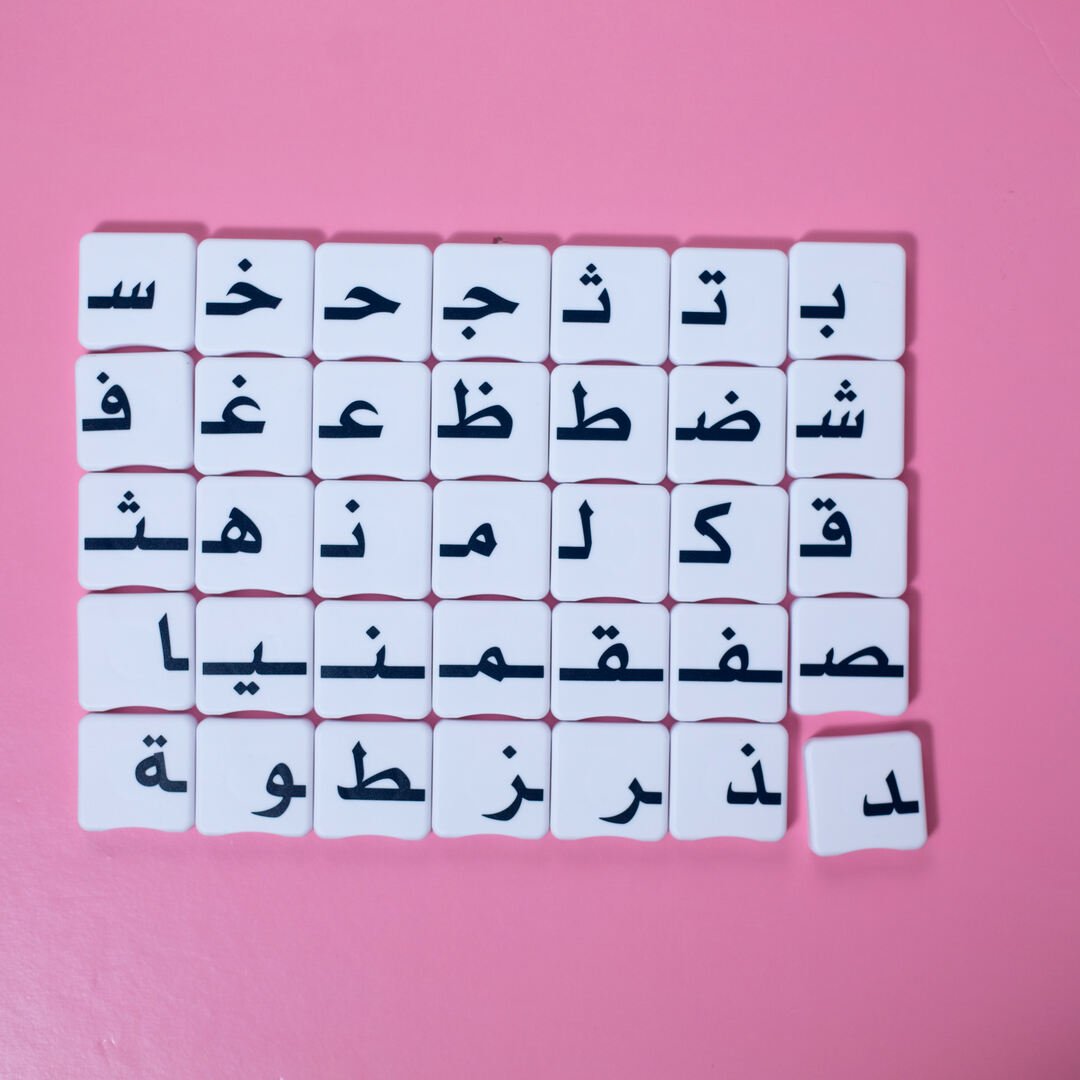 بـ تـ ثـ جـ حـ خـ سـ
شـ ضـ طـ ظـ عـ غـ فـ
قـ كـ لـ مـ نـ هـ ـثـ
ـصـ ـفـ ـقـ ـمـ ـنـ ـيـ ـا
ـد ـذ ـر ـز ـط ـو ـة